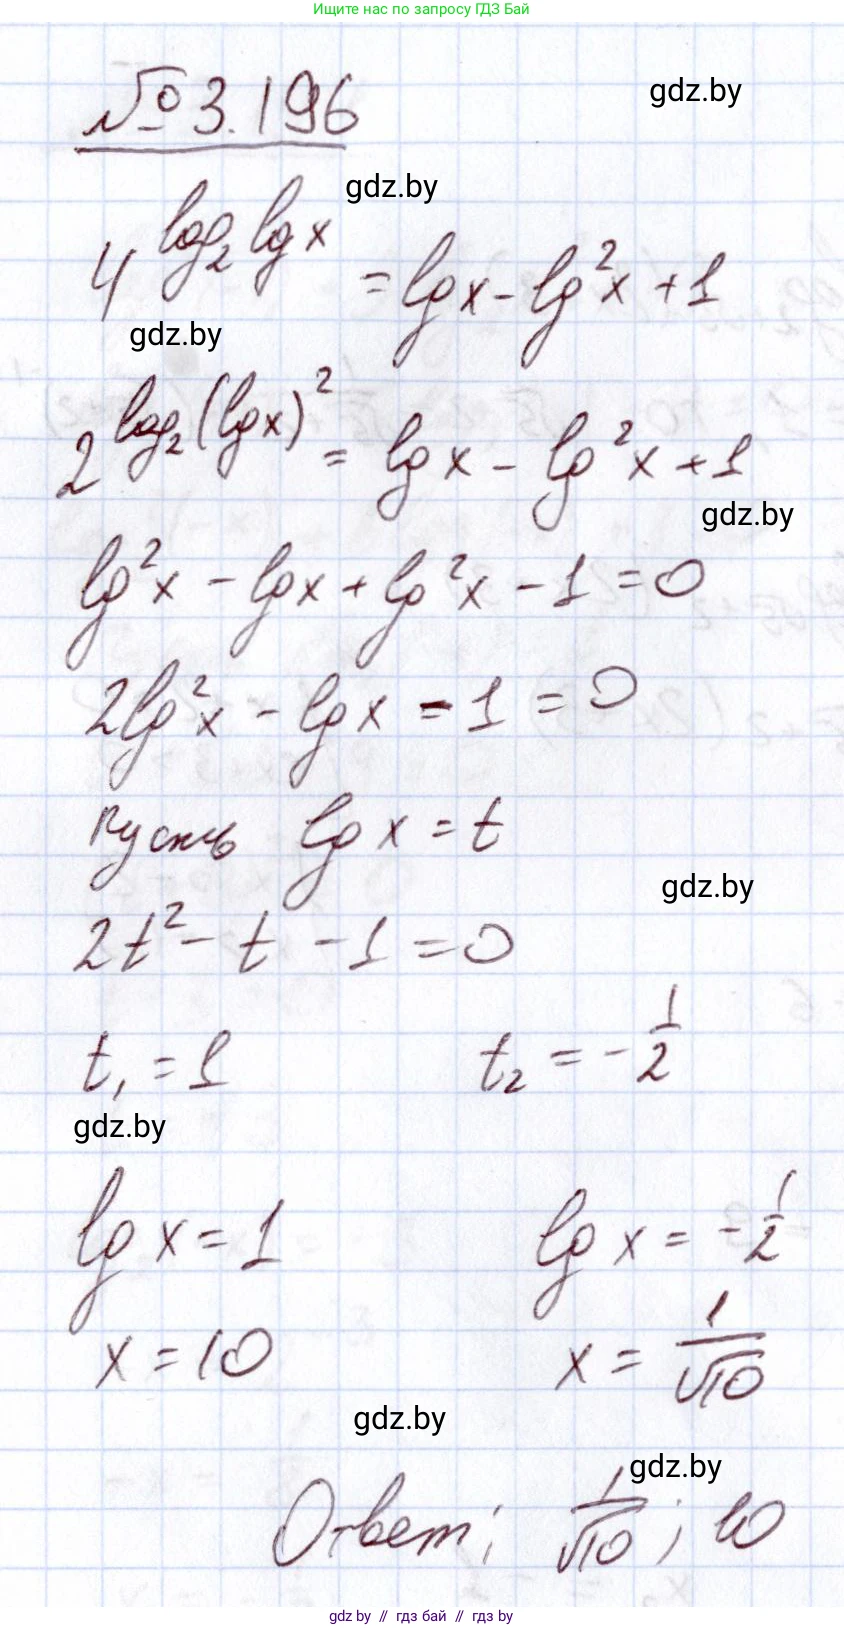 Ищите нас по запросу ГДЗ Бай
№ 3.196
gdz.by
gdz.by
4^(log₂ lg x) = lg x - lg²x + 1
gdz.by
2^(log₂ (lg x)²) = lg x - lg²x + 1
gdz.by
lg²x - lg x + lg²x - 1 = 0
2lg²x - lg x - 1 = 0
пусть lg x = t
gdz.by
2t² - t - 1 = 0
t₁ = 1 t₂ = -1/2
gdz.by
lg x = 1 lg x = -1/2
x = 10 x = 1/√10
gdz.by
gdz.by
Ответ: 1/√10; 10
gdz.by // гдз бай // гдз by